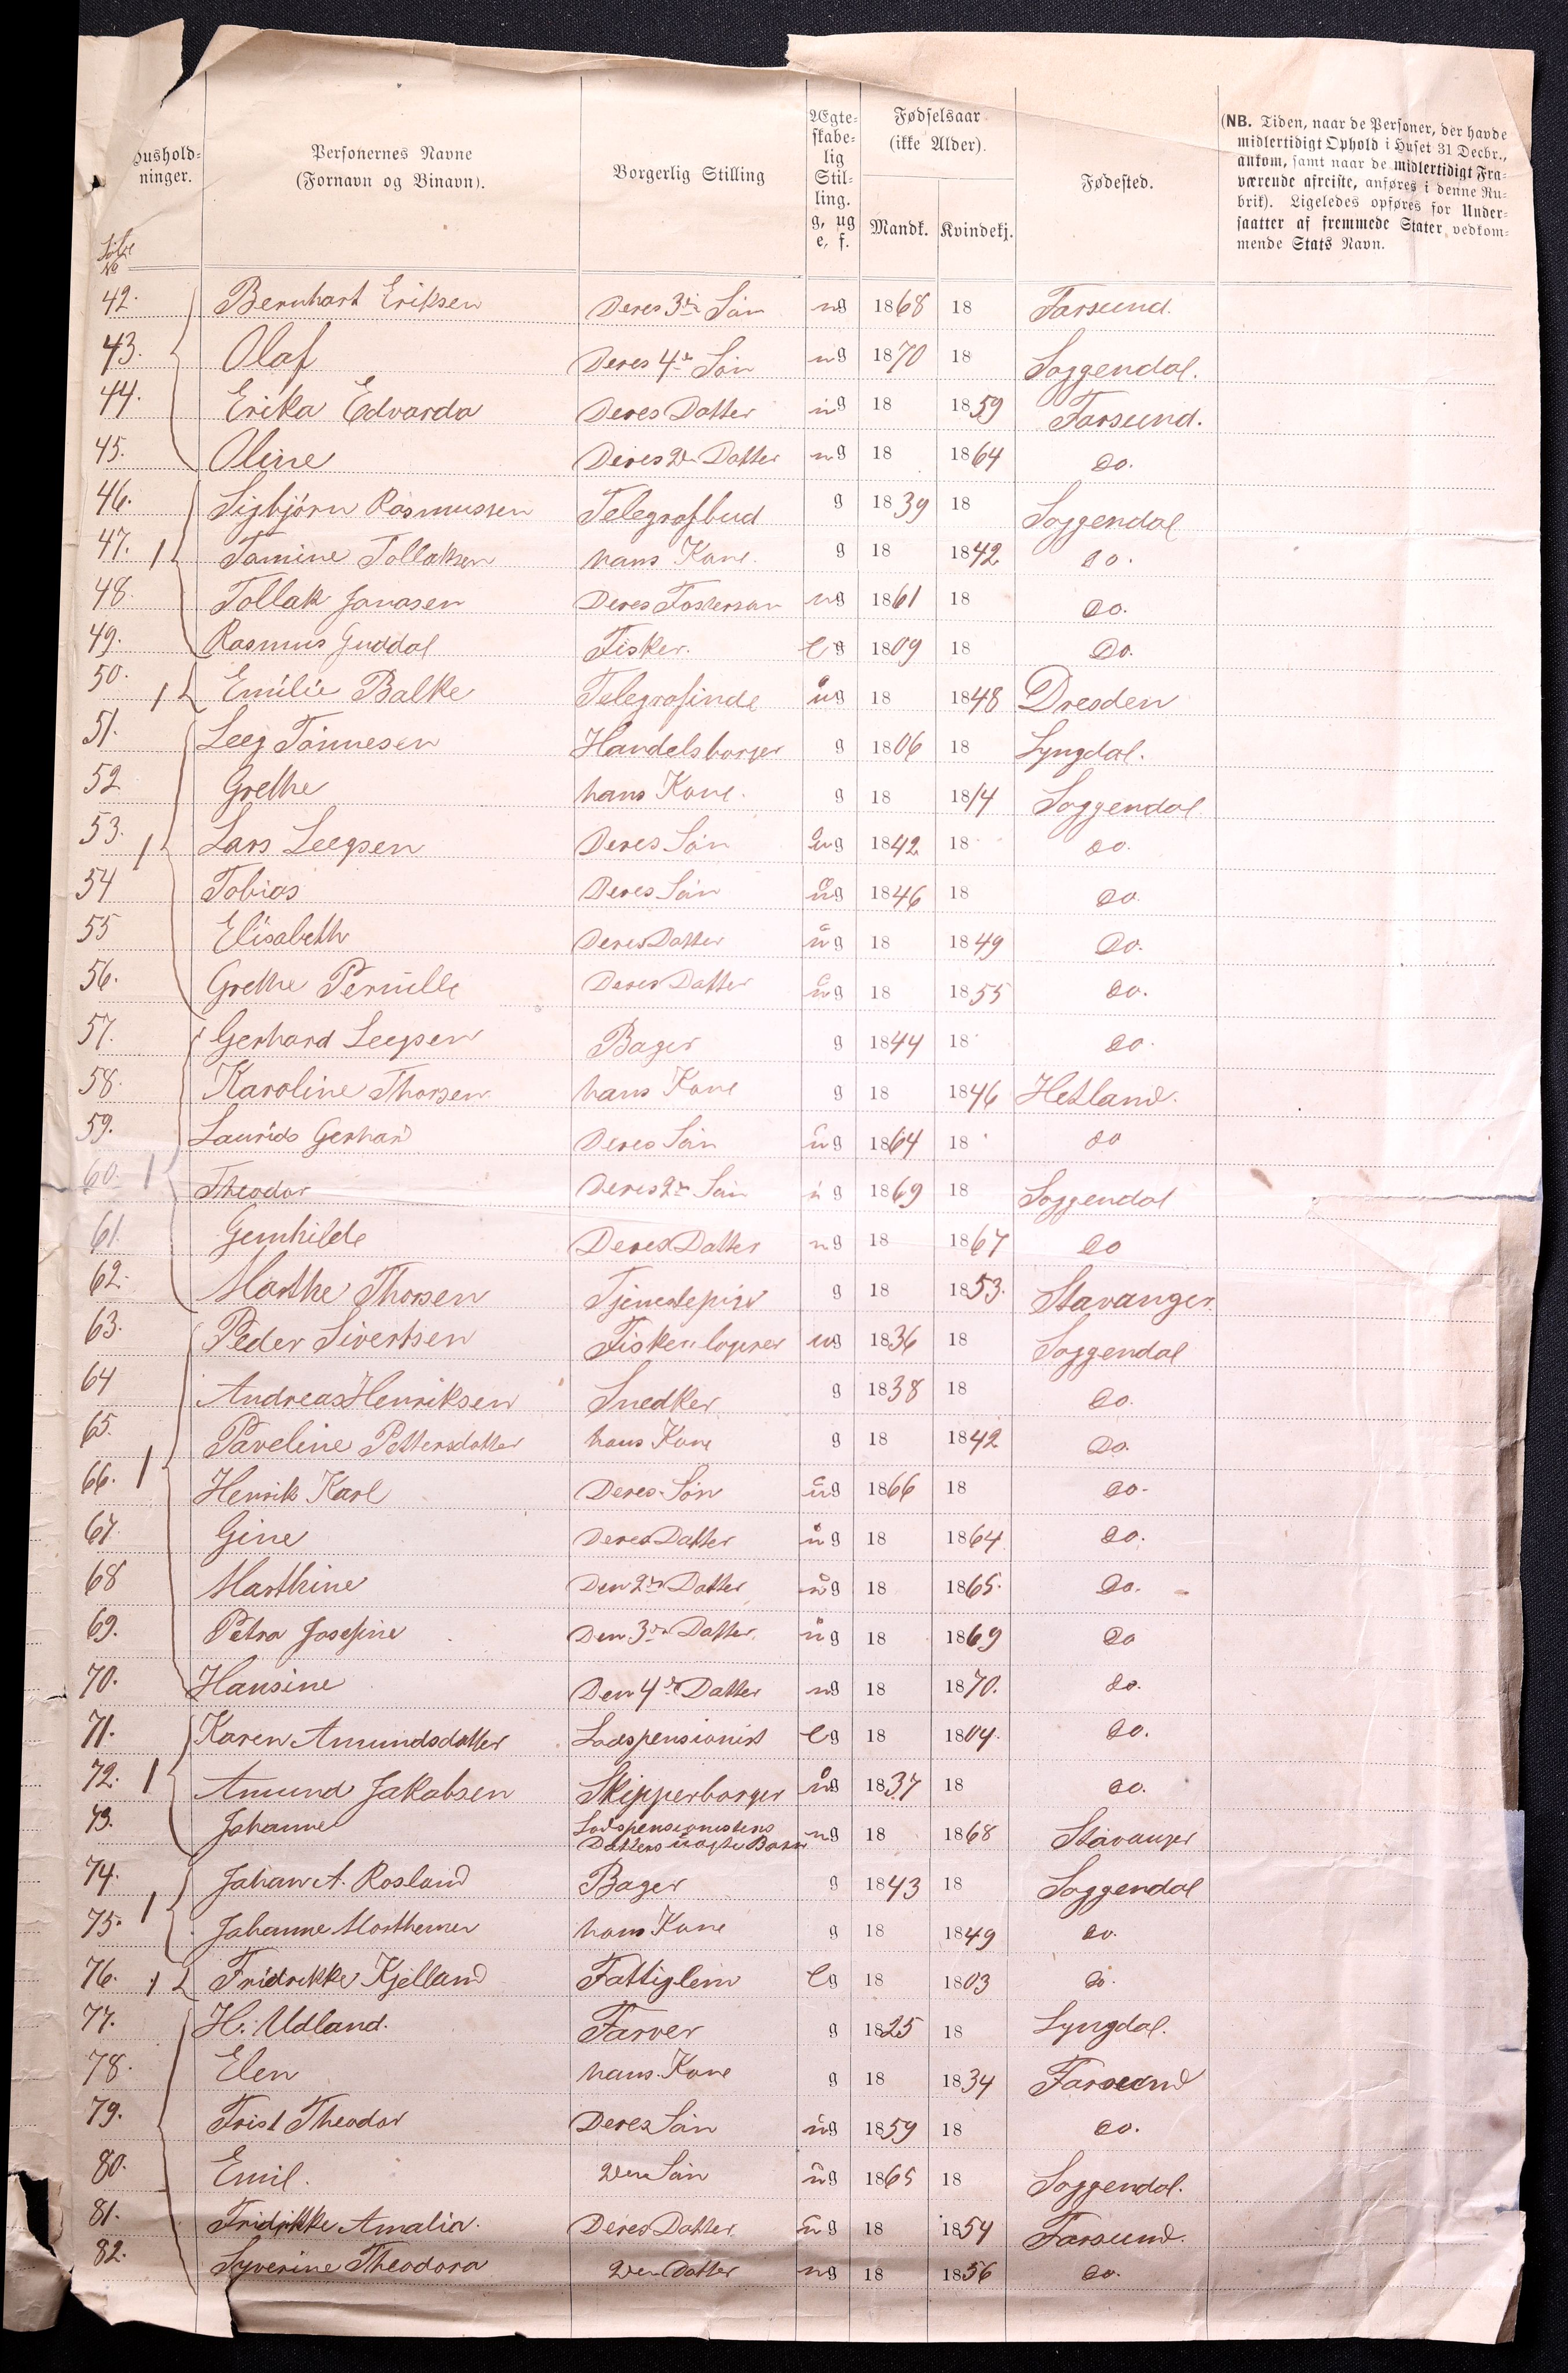 hushold-
ninger.
Personernes Navne
(Fornavn og Binavn).
Borgerlig Stilling
Ægte-
skabe-
lig
Stil-
ling.
g, ug
e, f.
Fødselsaar
(ikke Alder).
Mandk. Kvindekj.
Fødested.
(NB. Tiden, naar de Personer, der havde
midlertidigt Ophold i Huset 31 Decbr.,
ankom, samt naar de midlertidigt Fra-
værende afreiste, anføres i denne Ru-
brik). Ligeledes opføres for Under-
saatter af fremmede Stater vedkom-
mende Stats Navn.
Løbe
No
42. Bernhart Eriksen Deres 3die Søn ug 1868 18 Farsund.
43. Olaf Deres 4de Søn ug 1870 18 Soggendal.
44. Erika Edvarda Deres Datter ug 18 1859 Farsund.
45. Oline Deres 2den Datter ug 18 1864 Do.
46. Sigbjørn Rasmussen Telegrafbud g 1839 18 Soggendal
47. 1 Tomine Tollaksen hans Kone. g 18 1842 Do.
48. Tollak Jonasen Deres Fostersøn ug 1861 18 Do.
49. Rasmus Guddal Fisker. eg 1809 18 Do.
50. 1 Emilie Balke Telegrafinde ug 18 1848 Dresden
51. Leeg Tønnesen Handelsborger g 1806 18 Lyngdal.
52 Grethe hans Kone. g 18 1814 Soggendal
53. 1 Lars Leegsen Deres Søn ug 1842 18 do.
54 Tobias Deres Søn ug 1846 18 do.
55 Elisabeth Deres Datter ug 18 1849 Do.
56. Grethe Pernille Deres Datter ug 18 1855 do.
57. Gerhard Leegsen Bager g 1844 18 do.
58. Karoline Thorsen hans Kone g 18 1846 Hetland.
59. Laurids Gerhard Deres Søn ug 1864 18 do
60. 1 Theodor Deres 2den Søn ug 1869 18 Soggendal
61. Gunhilde Deres Datter ug 18 1867 Do
62. Marthe Thorsen Tjenestepige g 18 1853. Stavanger.
63. Peder Sivertsen Fisker, logerer ug 1836 18 Soggendal
64 Andreas Henriksen Snedker g 1838 18 Do.
65. Paveline Pettersdatter hans Kone g 18 1842 Do.
66. 1 Henrik Karl Deres Søn ug 1866 18 do.
67. Gine Deres Datter ug 18 1864 do.
68 Marthine Den 2den Datter ug 18 1865. Do.
69. Petra Josefine Den 3die Datter. ug 18 1869 do
70. Hansine Den 4de Datter ug 18 1870. do.
71. Karen Amundsdatter Lodspensionist eg 18 1804. do.
72. 1 Amund Jakobsen Skipperborger ug 1837 18 do.
73. Johanne Lodspensionistens
Datters uægte Barn ug 18 1868 Stavanger
74. Johan A. Rosland Bager g 1843 18 Soggendal
75. 1 Johanne Morthemer hans Kone g 18 1849 do.
76. 1 Fridrikke Kjelland Fattiglem eg 18 1803 do.
77. H. Udland. Farver g 1825 18 Lyngdal.
78. Elen hans Kone g 18 1834 Farsund
79. Frist Theodor Deres Søn ug 1859 18 do.
80. Emil. 2den Søn ug 1865 18 Soggendal.
81. Fridrikke Amalia. Deres Datter ug 18 1854 Farsund.
82. Syverine Theodora 2den Datter ug 18 1856 do.